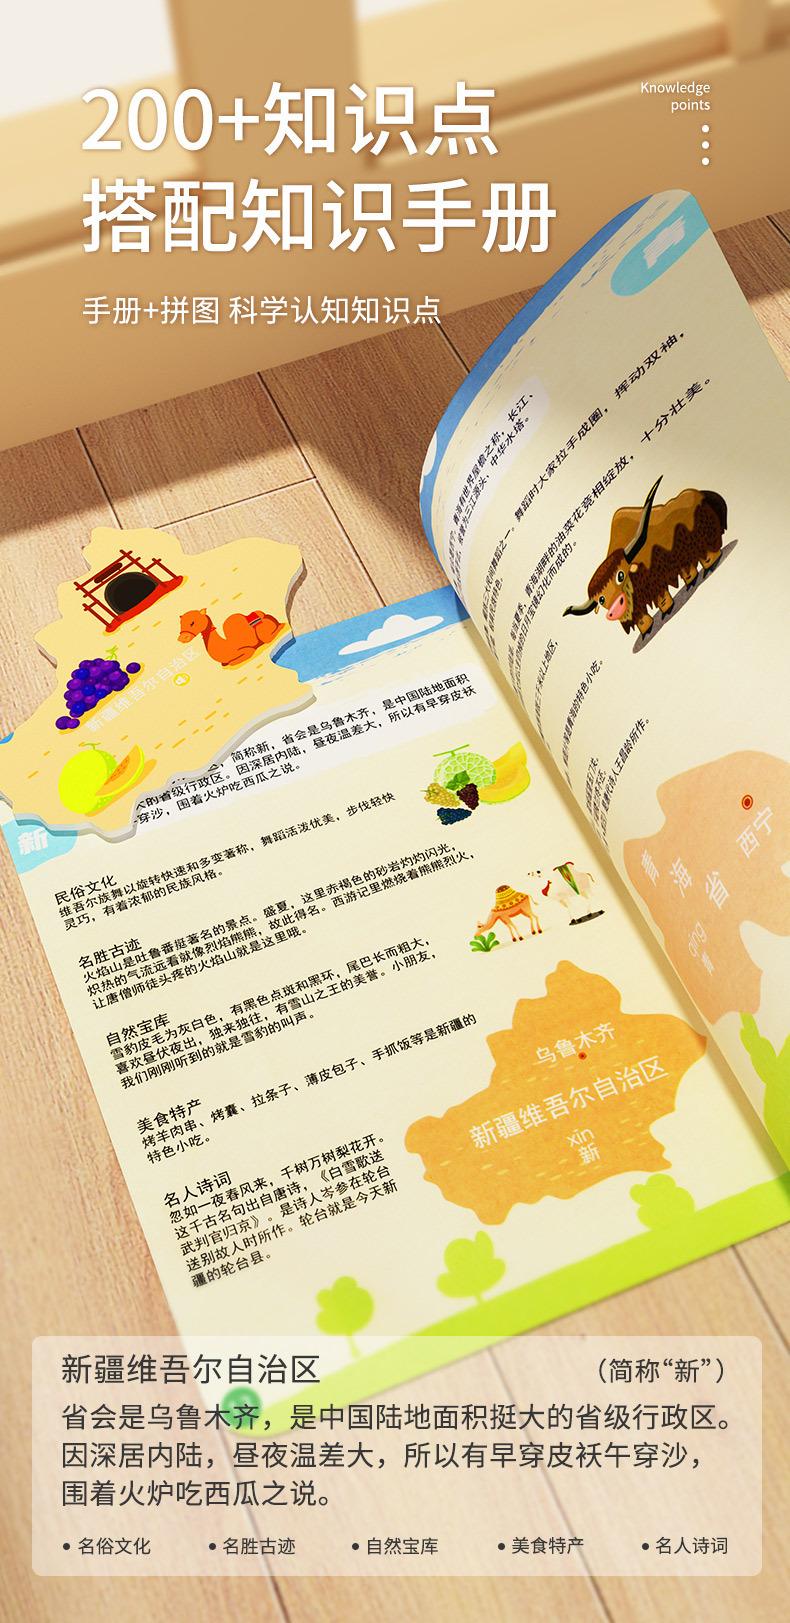 200+知识点
搭配知识手册
手册+拼图 科学认知知识点
Knowledge
points
挥动双袖，
舞蹈时大家拉手成圈，
十分壮美。
青海湖畔的油菜花竞相绽放，
青海有世界屋檐之称，长江、
中华水塔。
青海省
西宁
qing
青
新疆维吾尔自治区
新
简称新，省会是乌鲁木齐，是中国陆地面积
大的省级行政区。因深居内陆，昼夜温差大，所以有早穿皮袄
穿沙，围着火炉吃西瓜之说。
民俗文化
维吾尔族舞以旋转快速和多变著称，舞蹈活泼优美，步伐轻快
灵巧，有着浓郁的民族风格。
名胜古迹
火焰山是吐鲁番挺著名的景点。盛夏，这里赤褐色的砂岩灼灼闪光，
炽热的气流远看就像烈焰熊熊，故此得名。西游记里燃烧着熊熊烈火，
让唐僧师徒头疼的火焰山就是这里哦。
自然宝库
雪豹皮毛为灰白色，有黑色点斑和黑环，尾巴长而粗大，
喜欢昼伏夜出，独来独往，有雪山之王的美誉。小朋友，
我们刚刚听到的就是雪豹的叫声。
美食特产
烤羊肉串、烤囊、拉条子、薄皮包子、手抓饭等是新疆的
特色小吃。
名人诗词
忽如一夜春风来，千树万树梨花开。
这千古名句出自唐诗，《白雪歌送
武判官归京》。是诗人岑参在轮台
送别故人时所作。轮台就是今天新
疆的轮台县。
乌鲁木齐
新疆维吾尔自治区
xin
新
新疆维吾尔自治区（简称“新”）
省会是乌鲁木齐，是中国陆地面积挺大的省级行政区。
因深居内陆，昼夜温差大，所以有早穿皮袄午穿沙，
围着火炉吃西瓜之说。
• 名俗文化 • 名胜古迹 • 自然宝库 • 美食特产 • 名人诗词